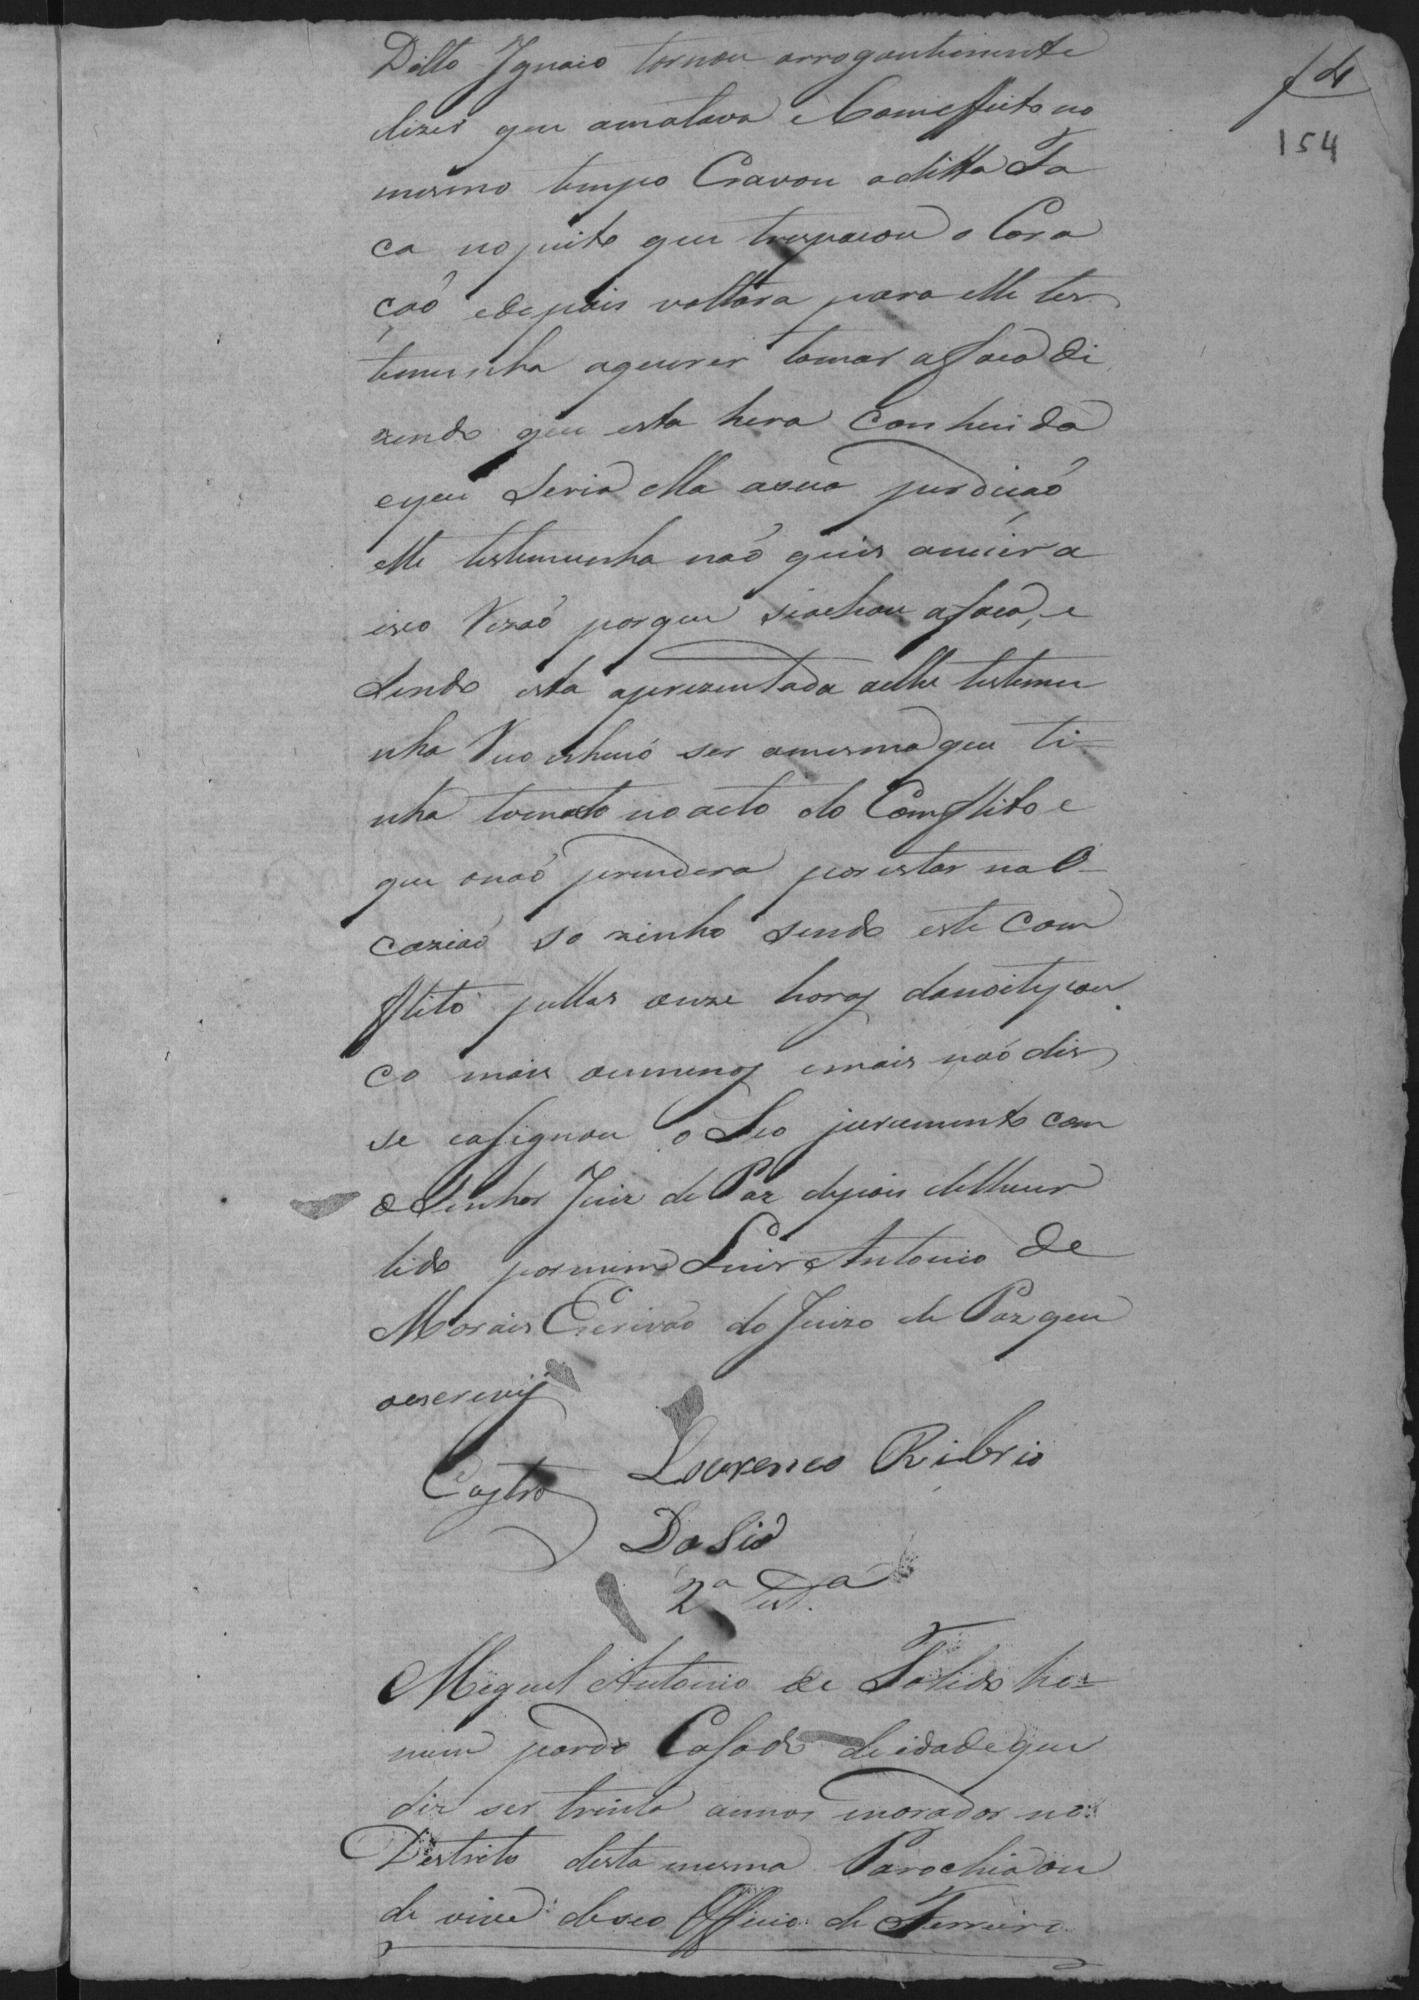 f 4
154
Ditto Ignacio tornou arrogantemente
dizer que amatava e Comeffeito no
mesmo tempo Cravou aditta Fa
ca nopeito que traspacou o Cora
caõ edepois voltara para elle tes
temunha aquerer tomar afaca di
zendo que esta hera Conhecida
eque Seria ella asua perdicaõ
elle testemunha naõ quis anuir a
isso Rezaõ porque seachou afaca, e
Sendo esta aprezentada aelle testemu
nha Reconheceó ser amesma que ti-
nha tomado no acto do Comflito e
que onaõ prendera por estar na O-
caziaõ sozinho sendo este Com
flito pellas onze horas danoite pou
co mais oumenos emais naõ dis
se easignou o Seo juramento com
o Senhor Juiz de Paz depois delheser
lido pormim Luis Antonio de
Morais Escrivaõ do Juizo de Paz que
oescrevij
Castro Lourenco Ribrio
Da Sia
2a Test.a
Miguel Antonio de Tolledo ho-
mem pardo Casado de idade que
diz ser trinta annos morador no
Destrito desta mesma Parochia on
de vive deseo Officio de Ferreiro